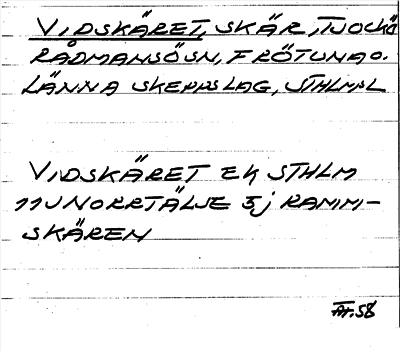 VIDSKÄRET, SKÄR, TJOCKÖ
RÅDMANSÖSN, FRÖTUNA O.
LÄNNA SKEPPSLAG, STHLMSL
VIDSKÄRET EK STHLM
11 UNORRTÄLJE 5j RAMM-
SKÄREN